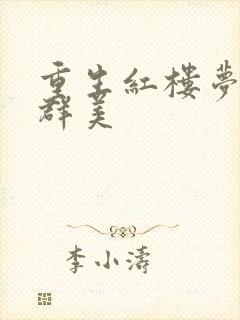 重生紅樓夢
群美
李小濤